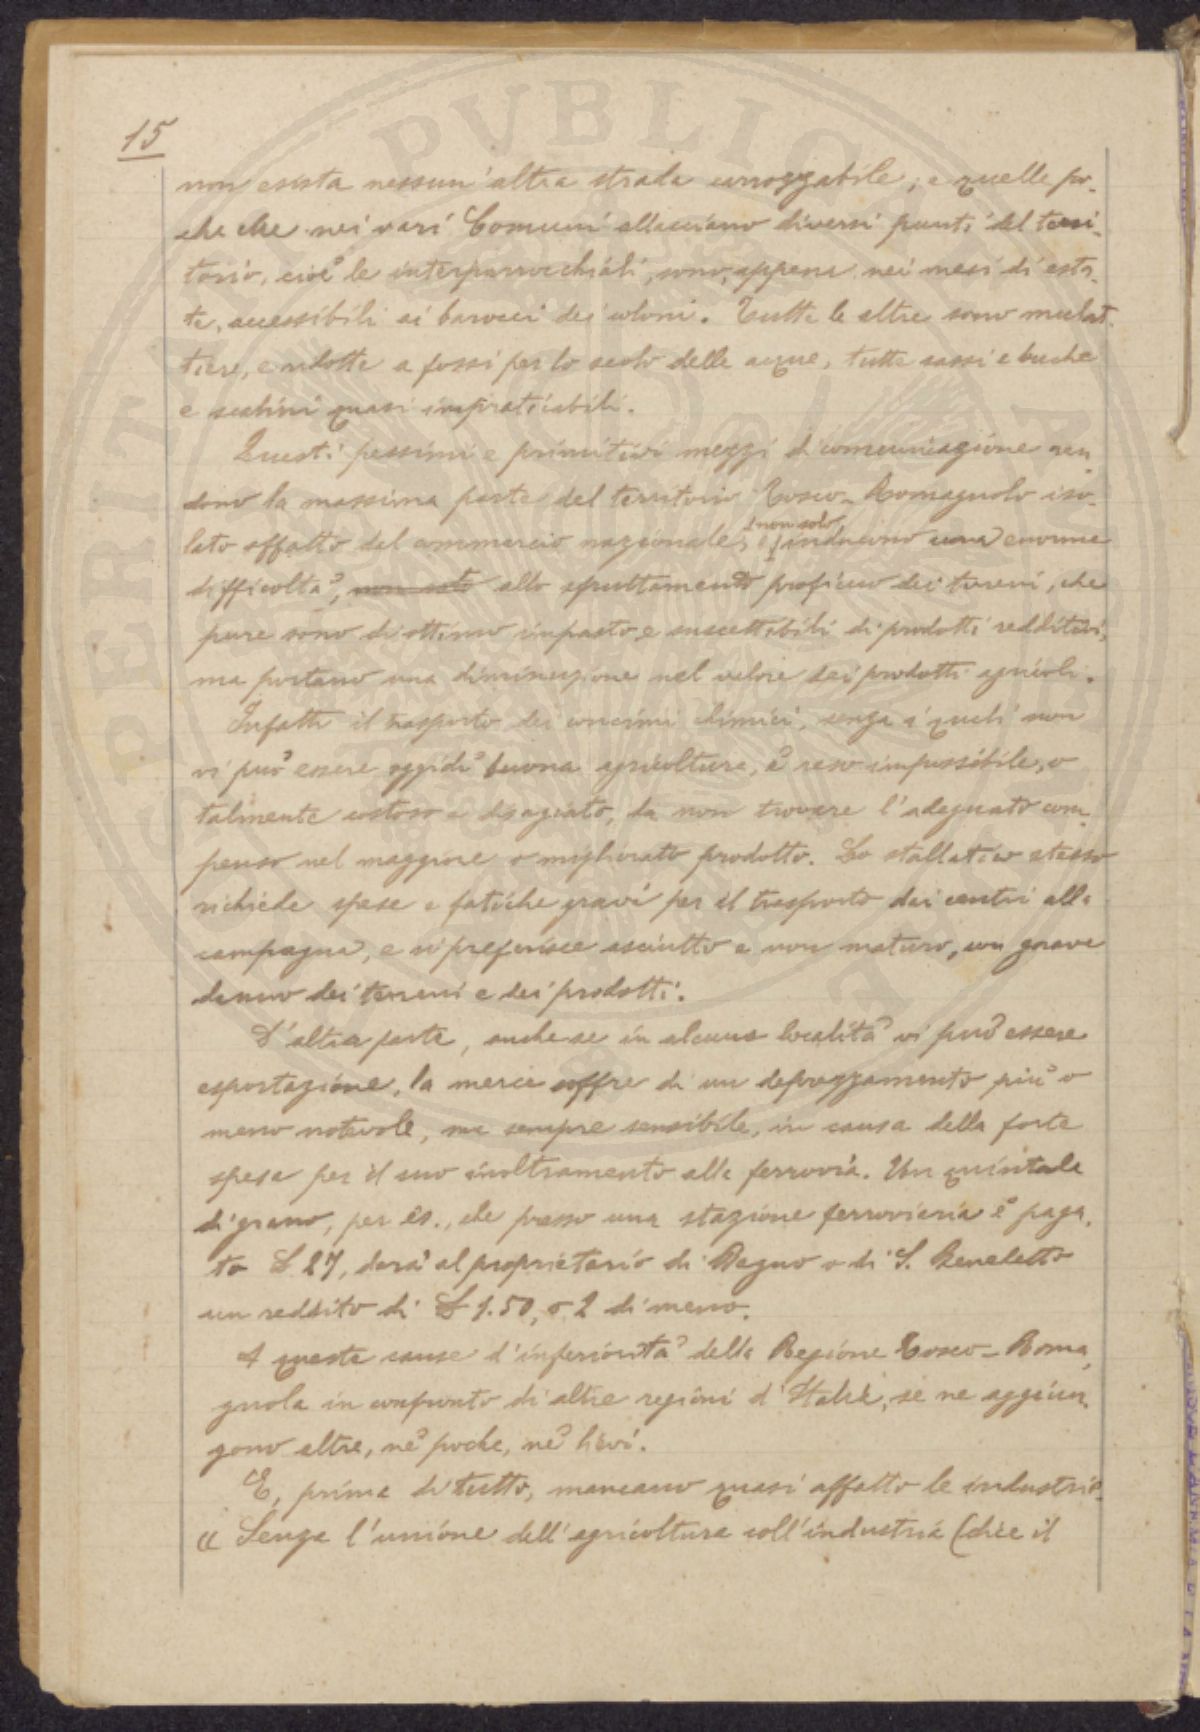 15
non esista nessun'altra strada carrozzabile; e quelle po-
che che nei vari Comuni allacciano diversi punti del terri-
torio, cioè le interparrocchiali, sono, appena nei mesi di esta-
te, accessibili ai barocci dei coloni. Tutte le altre sono mulat-
tiere, e ridotte a fossi per lo scolo delle acque, tutte sassi e buche
e scalini quasi impraticabili.
Questi pessimi e primitivi mezzi di comunicazione ren-
dono la massima parte del territorio Tosco-Romagnolo iso-
non solo
lato affatto dal commercio nazionale, e inducono una enorme
difficoltà, non solo allo sfruttamento proficuo dei terreni, che
pure sono di ottimo impasto e suscettibili di prodotti redditivi,
ma portano una diminuzione nel valore dei prodotti agricoli.
Infatti il trasporto dei concimi chimici, senza i quali non
vi può essere oggidì buona agricoltura, è reso impossibile, o
talmente costoso e disagiato, da non trovare l'adeguato com-
penso nel maggiore o migliorato prodotto. Lo stallatico stesso
richiede spese e fatiche gravi per il trasporto dai centri alla
campagna, e si preferisce asciutto e non maturo, con grave
danno dei terreni e dei prodotti.
D'altra parte, anche se in alcune località vi può essere
esportazione, la merce soffre di un deprezzamento più o
meno notevole, ma sempre sensibile, in causa della forte
spesa per il suo inoltramento alla ferrovia. Un quintale
di grano, per es., che presso una stazione ferroviaria è paga-
to £ 27, darà al proprietario di Bagno o di S. Benedetto
un reddito di £ 1.50, o 2 di meno.
A queste cause d'inferiorità della Regione Tosco-Roma-
gnola in confronto di altre regioni d'Italia, se ne aggiun-
gono altre, nè poche, nè lievi.
E, prima di tutto, mancano quasi affatto le industrie.
« Senza l'unione dell'agricoltura coll'industria (dice il
PVBLICA